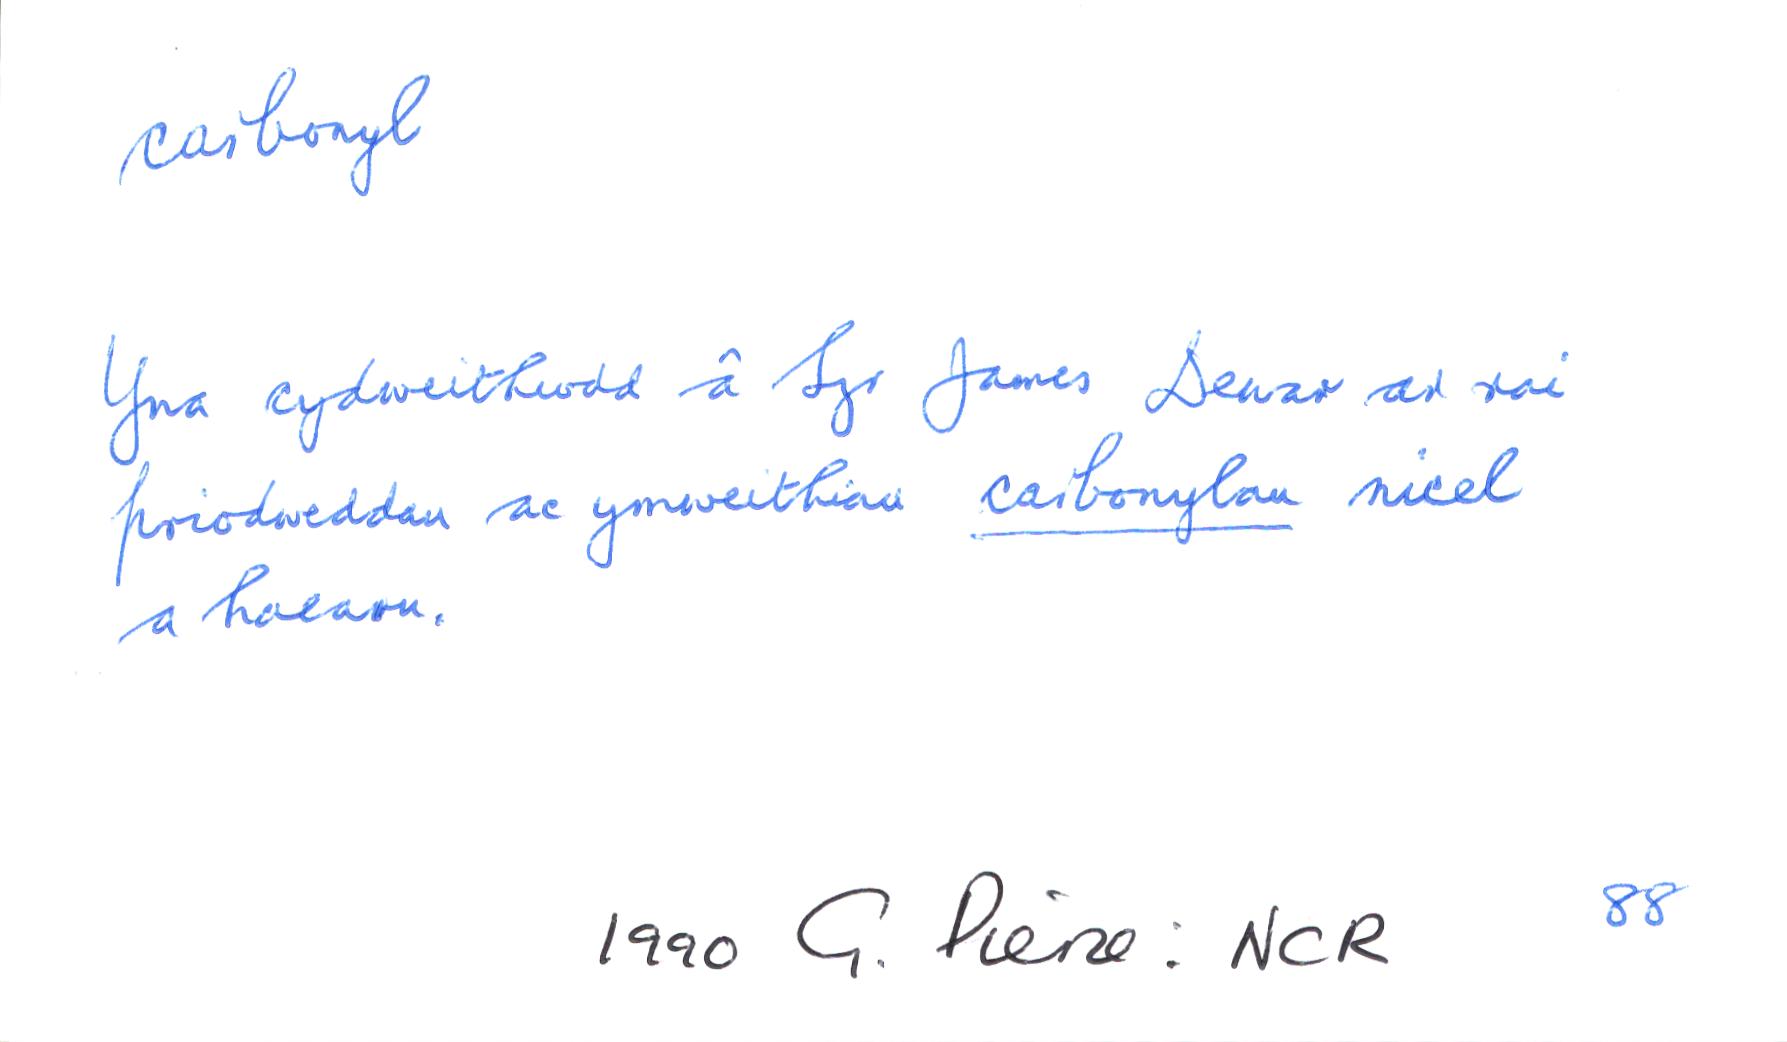 carbonyl
Yna cydweithiodd â Syr James Dewar ar rai
priodweddau ac ymweithiau carbonylau nicel
a haearn.
1990 G. Pierce: NCR 88